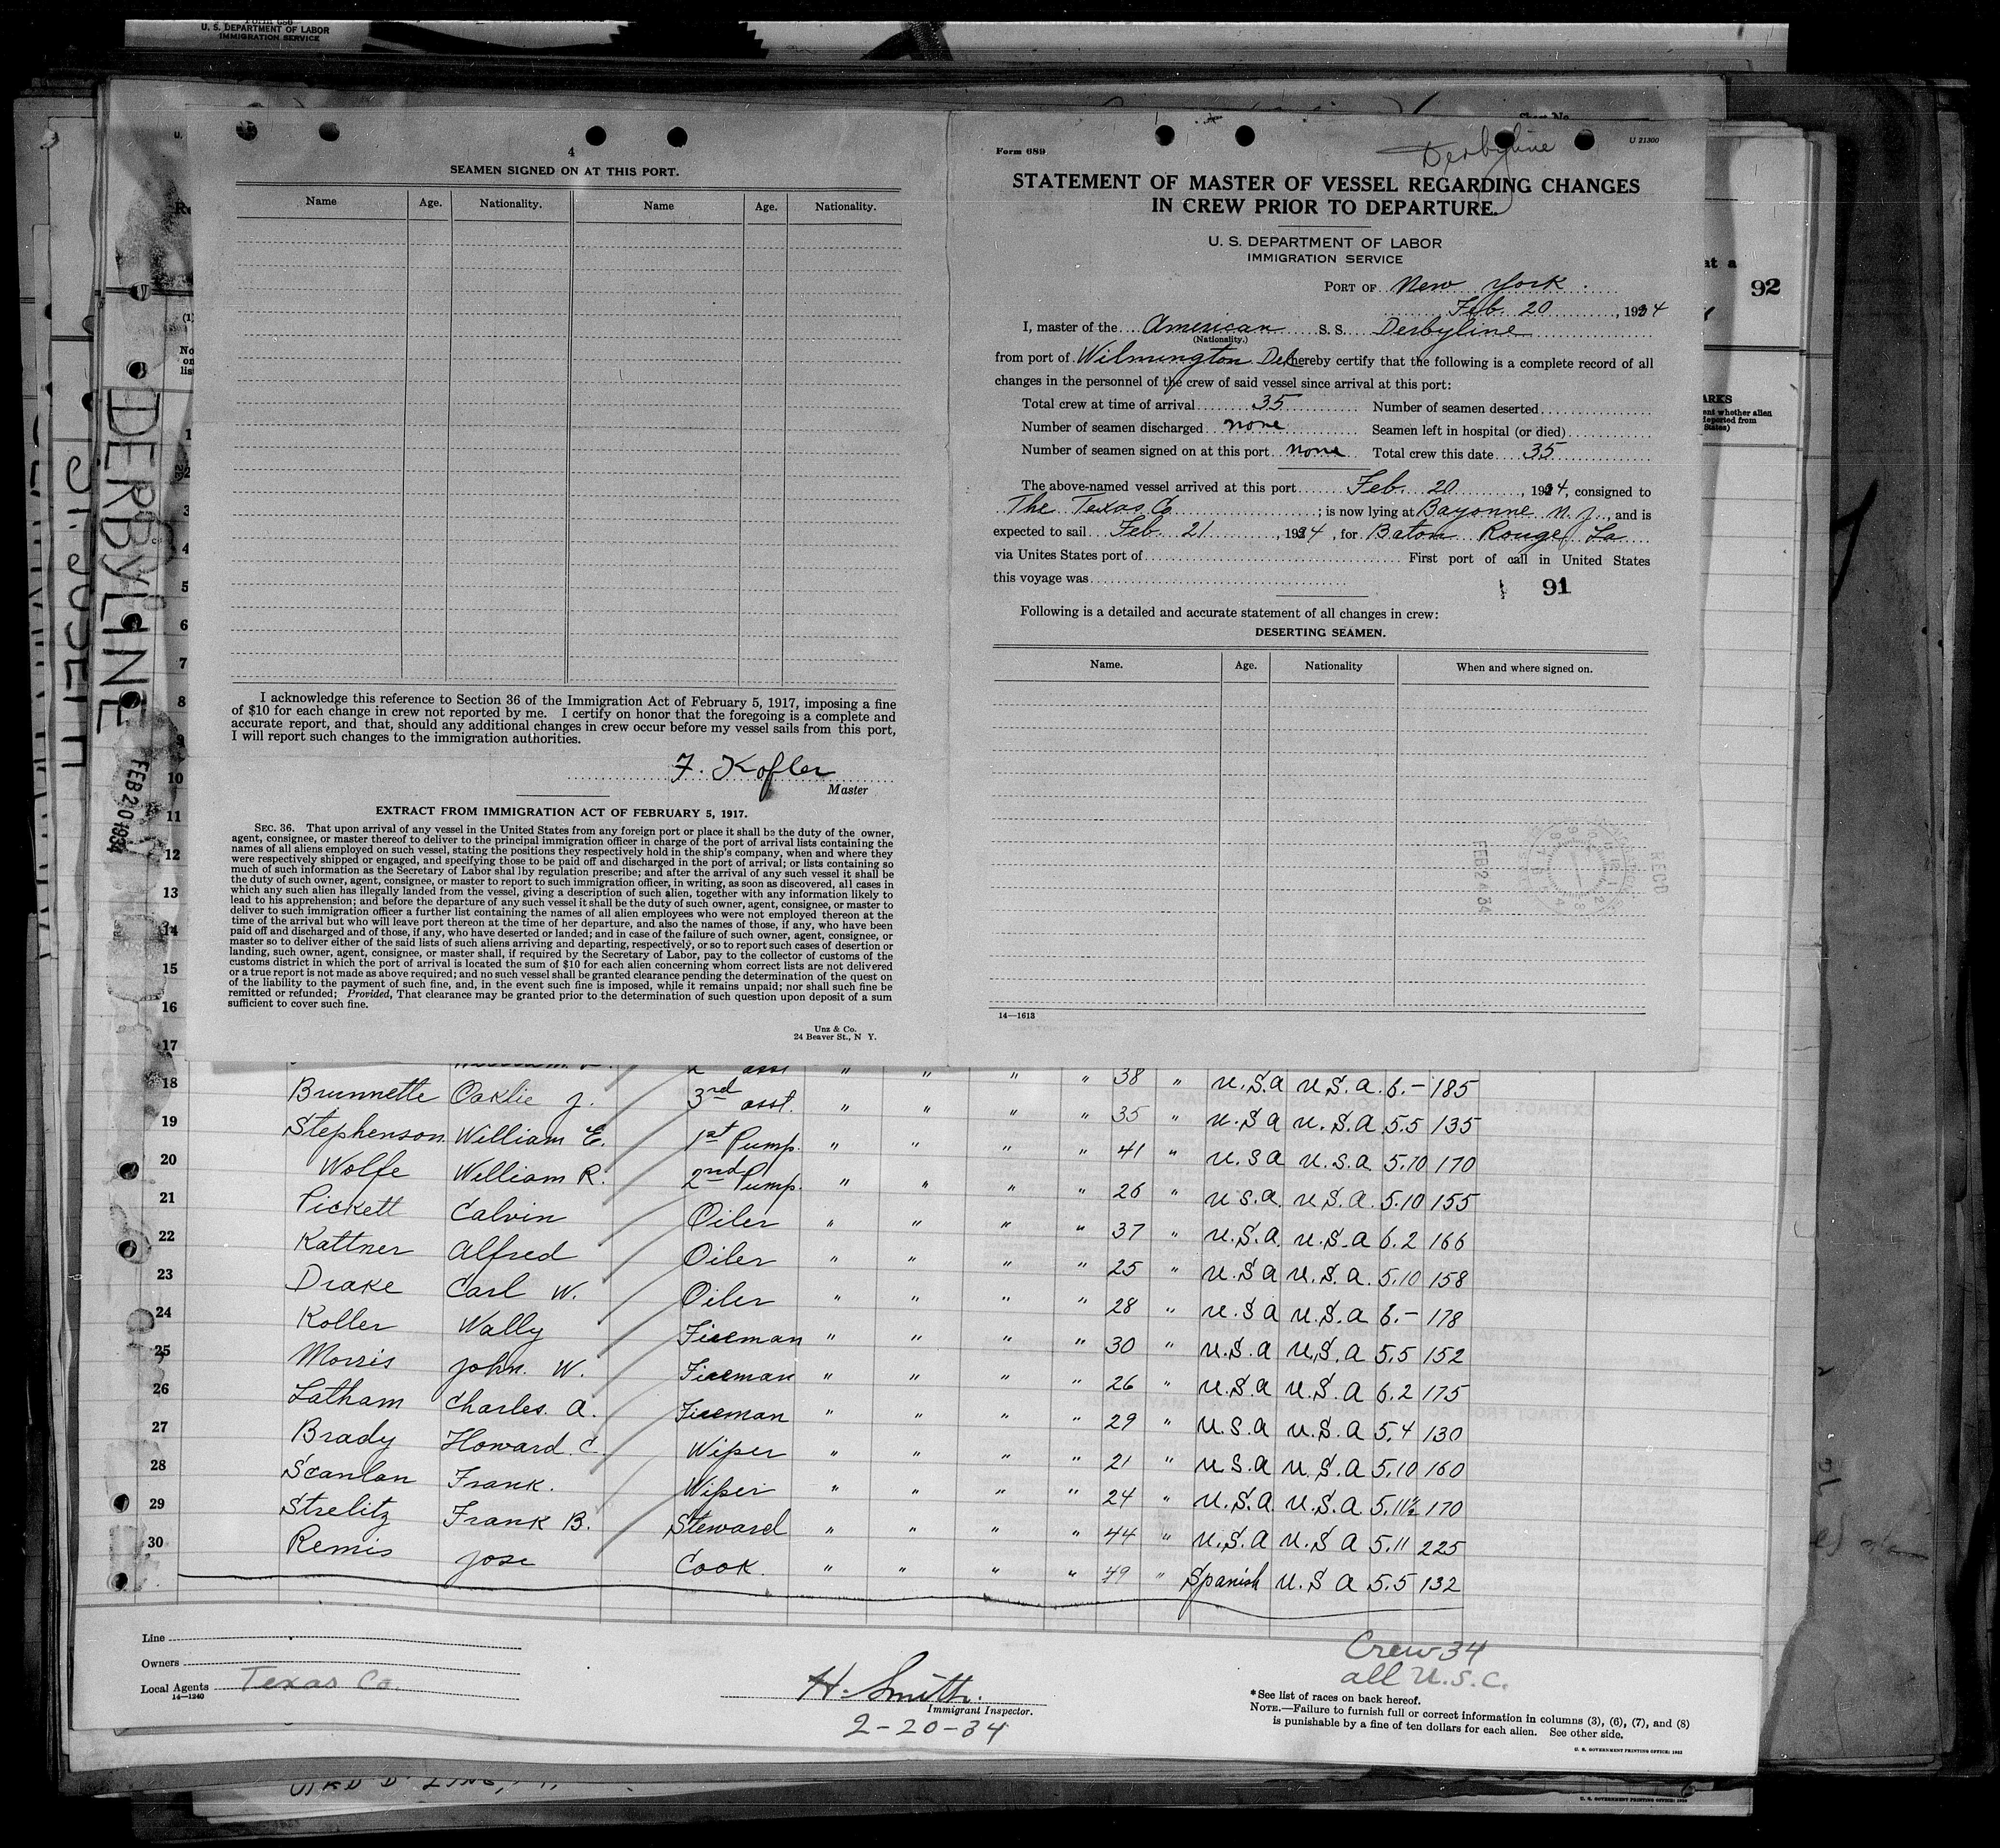 Form 686
U. S. DEPARTMENT OF LABOR
IMMIGRATION SERVICE
4
SEAMEN SIGNED ON AT THIS PORT.
Name Age. Nationality. Name Age. Nationality.
I acknowledge this reference to Section 36 of the Immigration Act of February 5, 1917, imposing a fine
of $10 for each change in crew not reported by me. I certify on honor that the foregoing is a complete and
accurate report, and that, should any additional changes in crew occur before my vessel sails from this port,
I will report such changes to the immigration authorities.
F. Kofler
Master
EXTRACT FROM IMMIGRATION ACT OF FEBRUARY 5, 1917.
SEC. 36. That upon arrival of any vessel in the United States from any foreign port or place it shall be the duty of the owner,
agent, consignee, or master thereof to deliver to the principal immigration officer in charge of the port of arrival lists containing the
names of all aliens employed on such vessel, stating the positions they respectively hold in the ship's company, when and where they
were respectively shipped or engaged, and specifying those to be paid off and discharged in the port of arrival; or lists containing so
much of such information as the Secretary of Labor shal lby regulation prescribe; and after the arrival of any such vessel it shall be
the duty of such owner, agent, consignee, or master to report to such immigration officer, in writing, as soon as discovered, all cases in
which any such alien has illegally landed from the vessel, giving a description of such alien, together with any information likely to
lead to his apprehension; and before the departure of any such vessel it shall be the duty of such owner, agent, consignee, or master to
deliver to such immigration officer a further list containing the names of all alien employees who were not employed thereon at the
time of the arrival but who will leave port thereon at the time of her departure, and also the names of those, if any, who have been
paid off and discharged and of those, if any, who have deserted or landed; and in case of the failure of such owner, agent, consignee, or
master so to deliver either of the said lists of such aliens arriving and departing, respectively, or so to report such cases of desertion or
landing, such owner, agent, consignee, or master shall, if required by the Secretary of Labor, pay to the collector of customs of the
customs district in which the port of arrival is located the sum of $10 for each alien concerning whom correct lists are not delivered
or a true report is not made as above required; and no such vessel shall be granted clearance pending the determination of the quest on
of the liability to the payment of such fine, and, in the event such fine is imposed, while it remains unpaid; nor shall such fine be
remitted or refunded; Provided, That clearance may be granted prior to the determination of such question upon deposit of a sum
sufficient to cover such fine.
Unz & Co.
24 Beaver St., N Y.
Form 689
Derbyline
U 21300
STATEMENT OF MASTER OF VESSEL REGARDING CHANGES
IN CREW PRIOR TO DEPARTURE.
U. S. DEPARTMENT OF LABOR
IMMIGRATION SERVICE
PORT OF New York
Feb. 20, 1934
I, master of the American S. S. Derbyline
(Nationality.)
from port of Wilmington Del hereby certify that the following is a complete record of all
changes in the personnel of the crew of said vessel since arrival at this port:
Total crew at time of arrival 35 Number of seamen deserted
Number of seamen discharged none Seamen left in hospital (or died)
Number of seamen signed on at this port none Total crew this date 35
The above-named vessel arrived at this port Feb. 20, 1934, consigned to
The Texas Co ; is now lying at Bayonne N. J., and is
expected to sail Feb 21, 1934, for Baton Rouge, La
via Unites States port of First port of call in United States
this voyage was
91
Following is a detailed and accurate statement of all changes in crew:
DESERTING SEAMEN.
Name. Age. Nationality When and where signed on.
REC'D
FEB 2 34
14—1613
92
DERBYLINE
FEB 20 1934
ST. JOSEPH
1
2
3
4
5
6
7
8
9
10
11
12
13
14
15
16
17
2 asst " " " " 38 " U.S.A U.S.A. 6.- 185
18 Brunnette Oaklie J. 3rd asst. " " " " 35 " U.S.A U.S.A 5.5 135
19 Stephenson William E. 1st Pump. " " " " 41 " U.S.A U.S.A. 5.10 170
20 Wolfe William R. 2nd Pump. " " " " 26 " U.S.A. U.S.A. 5.10 155
21 Pickett Calvin Oiler " " " " 37 " U.S.A. U.S.A 6.2 166
22 Kattner Alfred Oiler " " " " 25 " U.S.A U.S.A. 5.10 158
23 Drake Carl W. Oiler " " " " 28 " U.S.A U.S.A 6.- 178
24 Koller Wally Fireman " " " " 30 " U.S.A U.S.A 5.5 152
25 Morris John. W. Fireman " " " " 26 " U.S.A U.S.A 6.2 175
26 Latham Charles. A. Fireman " " " " 29 " U.S.A U.S.A 5.4 130
27 Brady Howard. C. Wiper " " " " 21 " U.S.A U.S.A 5.10 160
28 Scanlan Frank. Wiper " " " " 24 " U.S.A. U.S.A 5.11½ 170
29 Strelitz Frank B. Steward " " " " 44 " U.S.A U.S.A 5.11 225
30 Remis Jose Cook. " " " " 49 " Spanish U.S.A 5.5 132
Line
Owners
Local Agents Texas Co.
14—1240
H. Smith.
Immigrant Inspector.
2-20-34
Crew 34
all U.S.C.
*See list of races on back hereof.
NOTE.—Failure to furnish full or correct information in columns (3), (6), (7), and (8)
is punishable by a fine of ten dollars for each alien. See other side.
U. S. GOVERNMENT PRINTING OFFICE: 1932